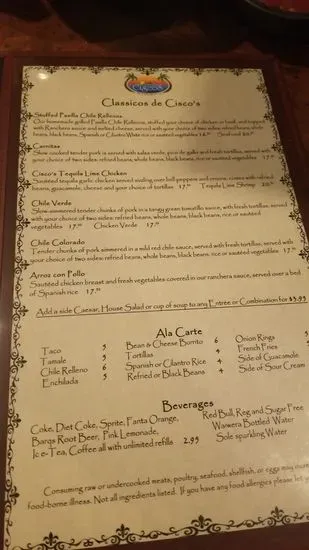 CISCO'S
Classicos de Cisco's
Stuffed Pasilla Chile Rellenos
Our homemade grilled Pasilla Chile Rellenos, stuffed your choice of chicken or beef, and topped
with Ranchera sauce and melted cheese, served with your choice of two sides: refried beans, whole
beans, black beans, Spanish or Cilantro White rice or sautéed vegetables
Carnitas
Slow cooked tender pork is served with salsa verde, pico de gallo and fresh tortillas, served with
your choice of two sides: refried beans, whole beans, black beans, rice or sautéed vegetables 17.
Cisco's Tequila Lime Chicken
Sautéed tequila garlic chicken served sizzling over bell peppers and onions, comes with refried
beans, guacamole, cheese and your choice of tortillas 17. Tequila Lime Shrimp
Chile Verde
Slow-simmered tender chunks of pork in a tangy green tomatillo sauce, with fresh tortillas, served
with your choice of two sides: refried beans, whole beans, black beans, rice or sautéed
vegetables 17. Chicken Verde 17.
Chile Colorado
Tender chunks of pork simmered in a mild red chile sauce, served with fresh tortillas, served with
your choice of two sides: refried beans, whole beans, black beans, rice or sautéed vegetables 17.
Arroz con Pollo
Sautéed chicken breast and fresh vegetables covered in our ranchera sauce, served over a bed
of Spanish rice 17.
Add a side Caesar, House Salad or cup of soup to any Entrée or Combination for $3.95
Ala Carte
Taco 5 Bean & Cheese Burrito 6 Onion Rings 5
Tamale 5 Tortillas 4 French Fries
Chile Relleno 6 Spanish or Cilantro Rice 4 Side of Guacamole
Enchilada 5 Refried or Black Beans 4 Side of Sour Cream
Beverages
Coke, Diet Coke, Sprite, Fanta Orange, Red Bull, Reg and Sugar Free
Barqs Root Beer, Pink Lemonade, Waiwera Bottled Water
Ice-Tea, Coffee all with unlimited refills 2.95 Sole sparkling Water
Consuming raw or undercooked meats, poultry, seafood, shellfish, or eggs may
food-borne illness. Not all ingredients listed. If you have any food allergies please let